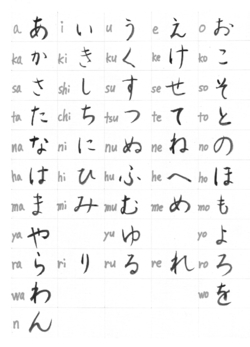 a あ i い u う e え o お
ka か ki き ku く ke け ko こ
sa さ shi し su す se せ so そ
ta た chi ち tsu つ te て to と
na な ni に nu ぬ ne ね no の
ha は hi ひ hu ふ he へ ho ほ
ma ま mi み mu む me め mo も
ya や yu ゆ yo よ
ra ら ri り ru る re れ ro ろ
wa わ wo を
n ん